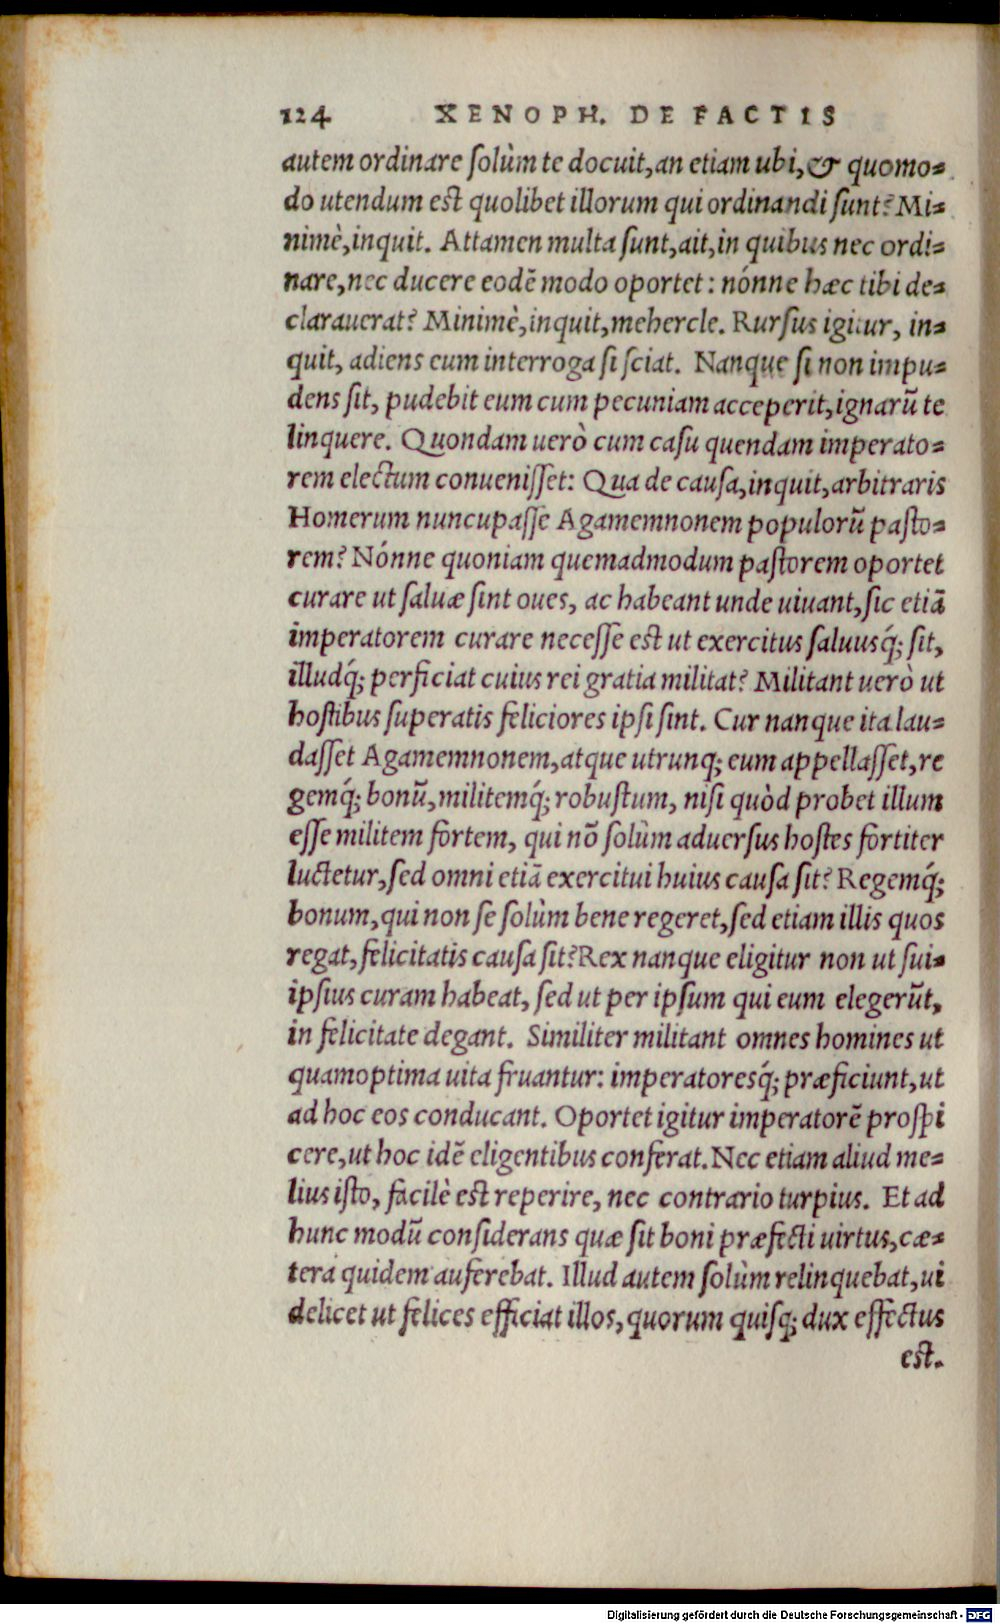 124 XENOPH. DE FACTIS
autem ordinare ſolùm te docuit, an etiam ubi, & quomo-
do utendum est quolibet illorum qui ordinandi ſunt? Mi-
nimè, inquit. Attamen multa ſunt, ait, in quibus nec ordi-
nare, nec ducere eodē modo oportet: nónne hæc tibi de-
clarauerat? Minimè, inquit, mehercle. Rurſus igitur, in-
quit, adiens eum interroga ſi ſciat. Nanque ſi non impu-
dens ſit, pudebit eum cum pecuniam acceperit, ignarū te
linquere. Quondam uerò cum caſu quendam imperato-
rem electum conueniſſet: Qua de cauſa, inquit, arbitraris
Homerum nuncupaſſe Agamemnonem populorū paſto-
rem? Nónne quoniam quemadmodum paſtorem oportet
curare ut ſaluæ ſint oues, ac habeant unde uiuant, ſic etiā
imperatorem curare neceſſe est ut exercitus ſaluusq́; ſit,
illudq́; perficiat cuius rei gratia militat? Militant uerò ut
hoſtibus ſuperatis feliciores ipſi ſint. Cur nanque ita lau-
daſſet Agamemnonem, atque utrunq; eum appellaſſet, re
gemq́; bonū, militemq́; robuſtum, niſi quòd probet illum
eſſe militem fortem, qui nō ſolùm aduerſus hoſtes fortiter
luctetur, ſed omni etiā exercitui huius cauſa ſit? Regemq́;
bonum, qui non ſe ſolùm bene regeret, ſed etiam illis quos
regat, felicitatis cauſa ſit? Rex nanque eligitur non ut ſui-
ipſius curam habeat, ſed ut per ipſum qui eum elegerūt,
in felicitate degant. Similiter militant omnes homines ut
quamoptima uita fruantur: imperatoresq́; præficiunt, ut
ad hoc eos conducant. Oportet igitur imperatorē proſpi
cere, ut hoc idē eligentibus conferat. Nec etiam aliud me-
lius iſto, facilè est reperire, nec contrario turpius. Et ad
hunc modū conſiderans quæ ſit boni præfecti uirtus, cæ-
tera quidem auferebat. Illud autem ſolùm relinquebat, ui
delicet ut felices efficiat illos, quorum quiſq; dux effectus
est.
Digitalisierung gefördert durch die Deutsche Forschungsgemeinschaft - DFG